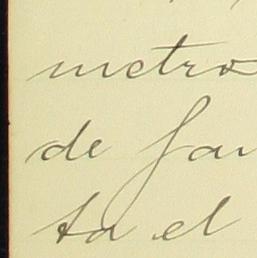 metro
de fau
ta el